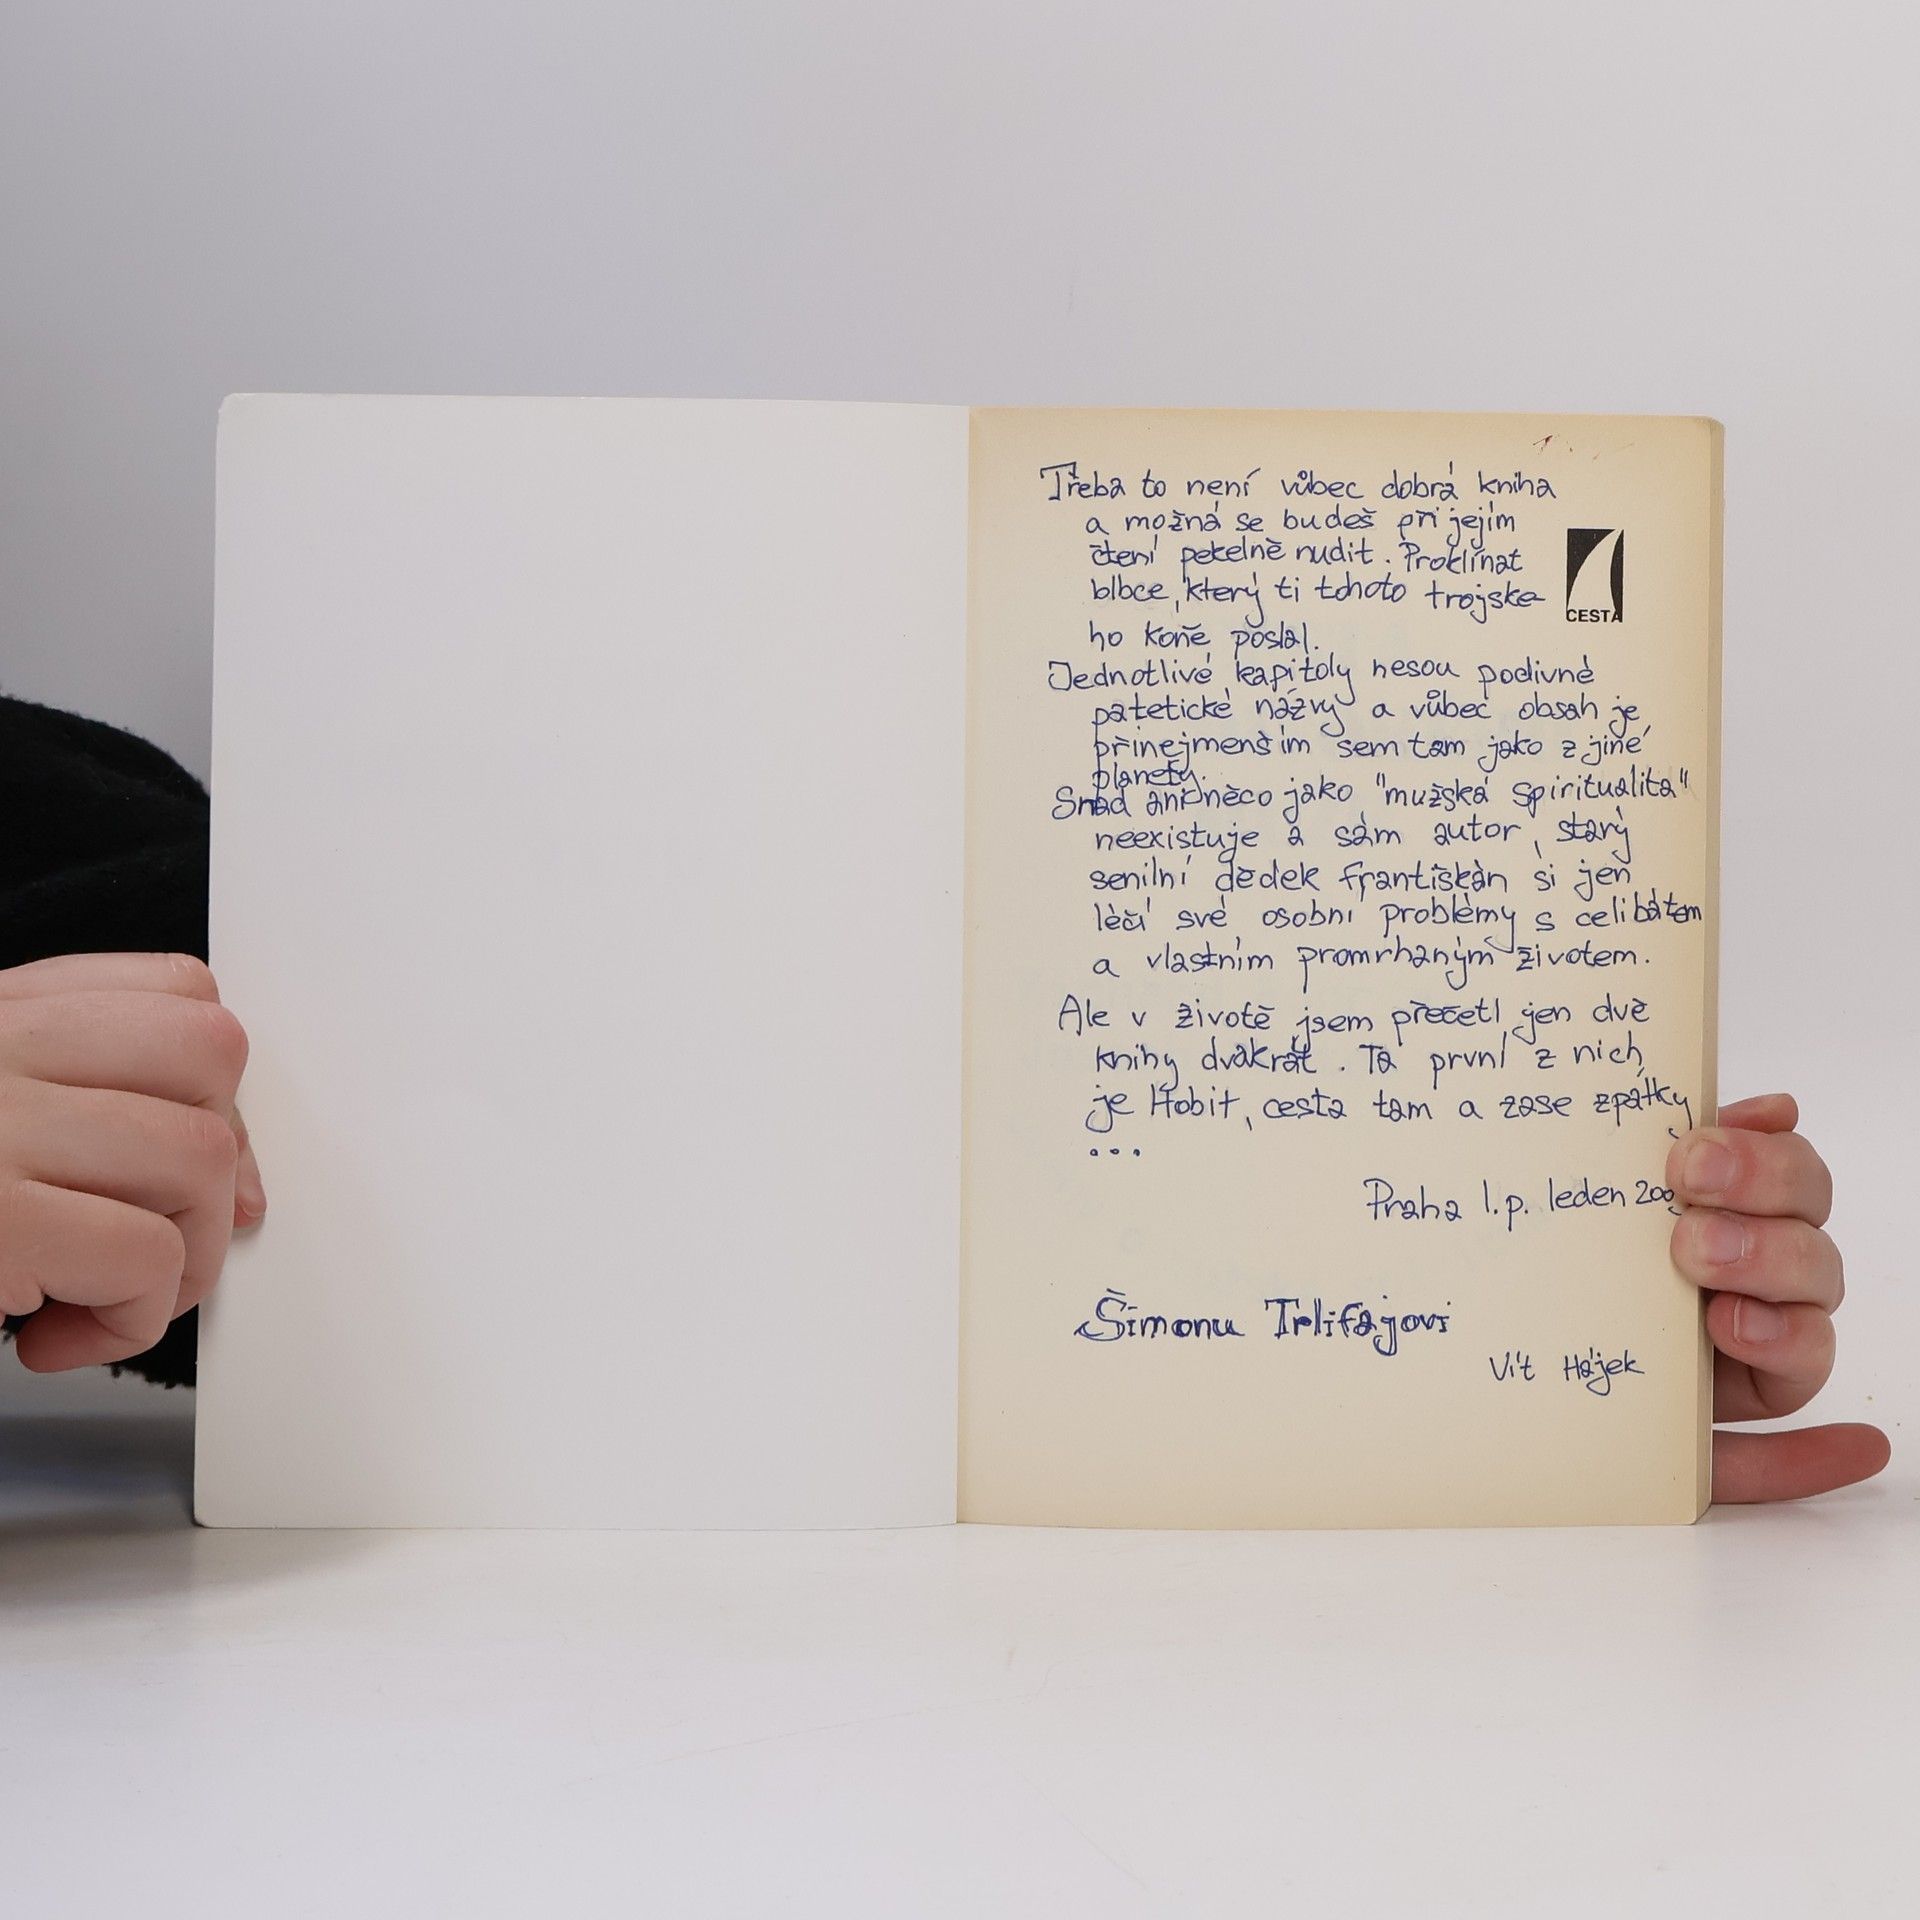 Třeba to není vůbec dobrá kniha
a možná se budeš při jejím
čtení pekelně nudit. Proklínat
blbce, který ti tohoto trojske-
ho koně poslal.
CESTA
Jednotlivé kapitoly nesou podivně
patetické názvy a vůbec obsah je
přinejmenším sem tam jako z jiné
planety.
Snad ani něco jako "mužská spiritualita"
neexistuje a sám autor, starý
senilní dědek františkán si jen
léčí své osobní problémy s celibátem
a vlastním promrhaným životem.
Ale v životě jsem přečetl jen dvě
knihy dvakrát. Ta první z nich
je Hobit, cesta tam a zase zpátky
...
Praha l.p. leden
Šimonu Trlifajovi
Vít Hájek